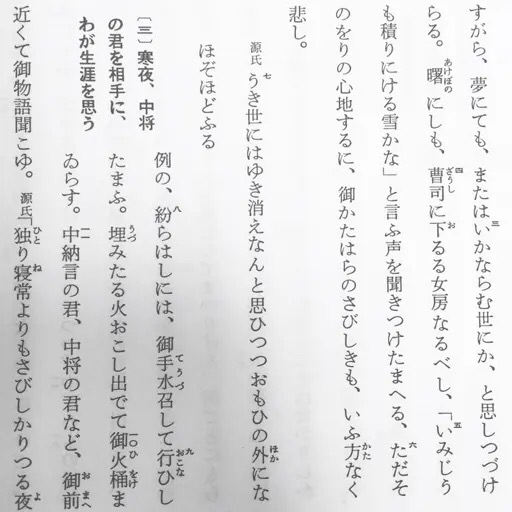 すがら、夢にても、またはいかならむ世にか、と思しつづけ
らる。曙にしも、曹司に下るる女房なるべし、「いみじう
も積りにける雪かな」と言ふ声を聞きつけたまへる、ただそ
のをりの心地するに、御かたはらのさびしきも、いふ方なく
悲し。
源氏 うき世にはゆき消えなんと思ひつつおもひの外にな
ほぞほどふる
〔三〕寒夜、中将
の君を相手に、
わが生涯を思う
例の、紛らはしには、御手水召して行ひし
たまふ。埋みたる火おこし出でて御火桶ま
ゐらす。中納言の君、中将の君など、御前
近くて御物語聞こゆ。源氏「独り寝常よりもさびしかりつる夜